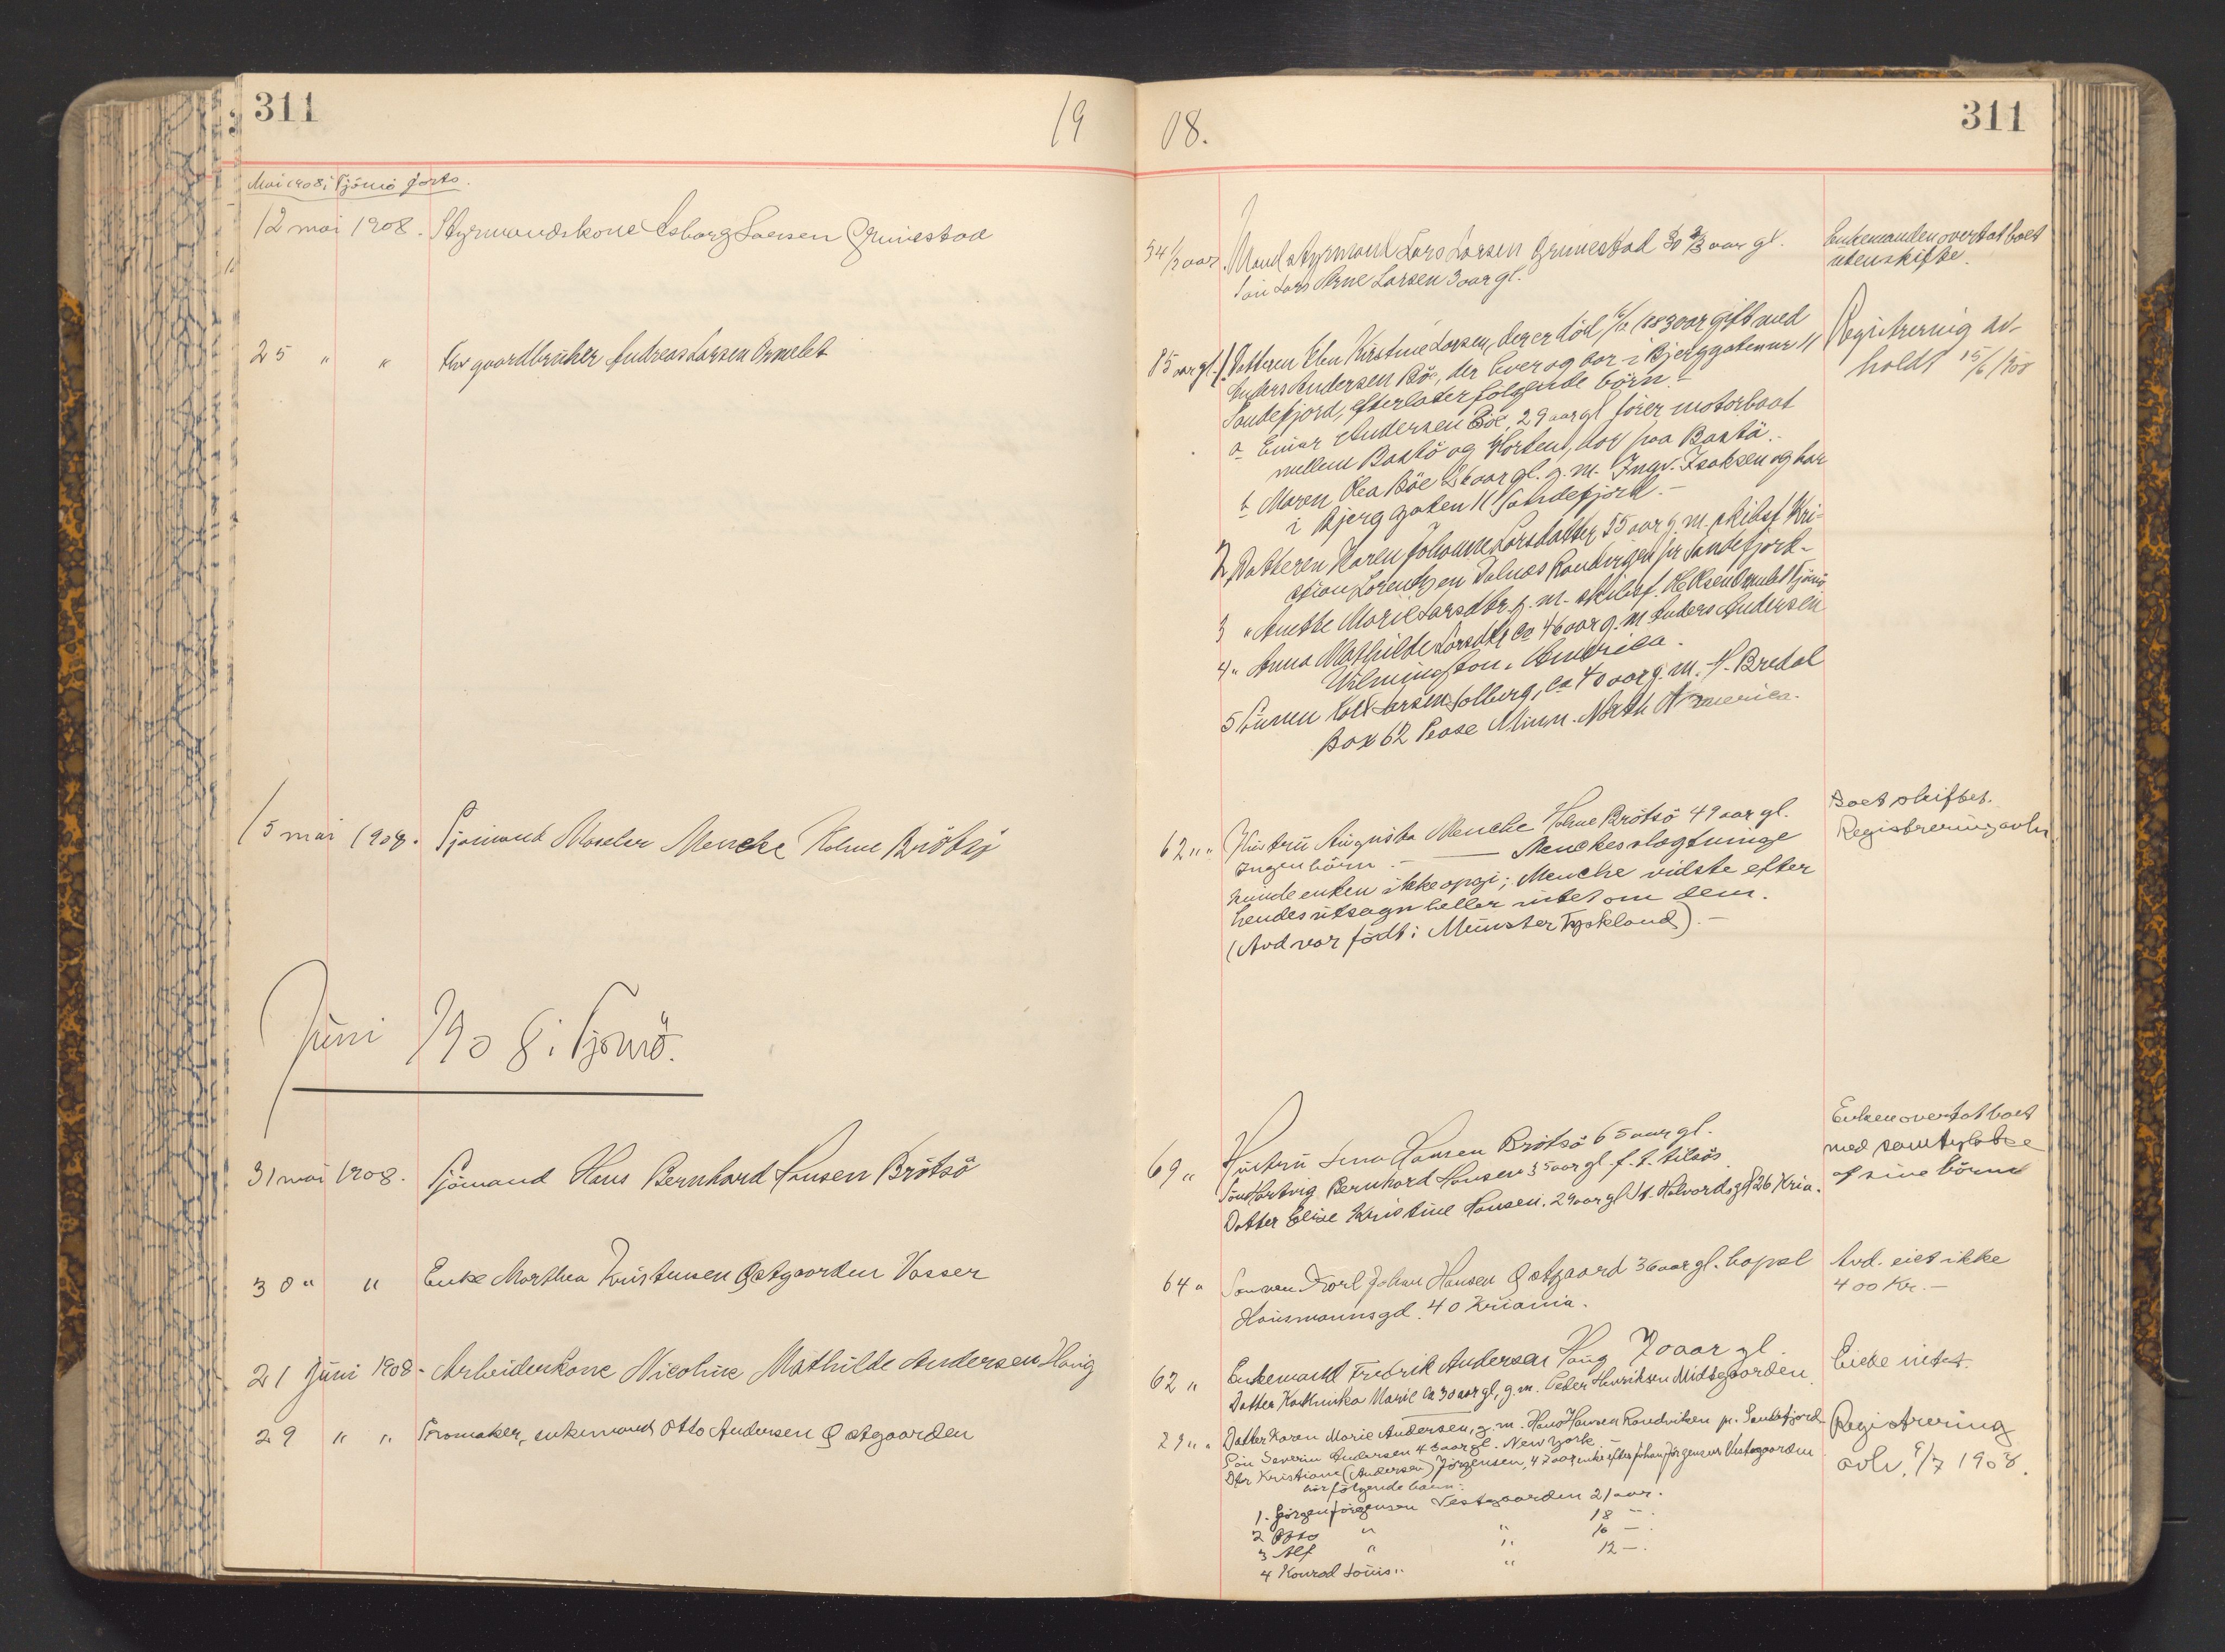 311
19
08.
311
Mai 1908 i Tjömö forts.
12 mai 1908. Styrmandskone Larsen Grimestad
34 1/2 aar. Mand styrmand Lars Larsen Grimestad aar gl.
Sön Lars Arne Larsen 3 aar gl.
Enkemanden overtat boet
uten skifte.
25 " " Fhv gaardbruker Andreas Larsen Ormelet
85 aar gl. 1. Datteren Kirstine Larsen, der er död 1883 var gift med
Anders Andersen Böe, der lever og bor i Bjerggaten nr 11
Sandefjord, efterlater følgende börn.-
a Einar Andersen Böe, 29 aar gl förer motorbaat
mellem Bastö og Horten, bor paa Bastö.
b Maren Olea Böe 26 aar gl. g. m. Ingv. Isaksen og bor
i Bjerggaten 11 Sandefjord.-
2 Datteren Karen Johanne Larsdatter 55 aar g. m. skibsf. Kri-
stian Lorentzen Ranvigen pr Sandefjord-
3 " Anette Marie Larsdtr. g. m. skibsf. Ormelet Tjömö
4 " Anna Mathilde Larsdtr ca 46 aar g. m Anders Andersen
Wilmington. America.-
5 Sönnen Larsen Solberg, ca 40 aar g. m. H. Bredal
Box 62 Pease Minn. North America.
Registrering av-
holdt 15/6 1908
15 mai 1908. Sjömand Mencke Holme Brötsö
62 " " Hustru Augusta Mencke Holme Brötsö 49 aar gl.
Ingen börn.- Menckes slægtninge
kunde enken ikke opgi; Mencke vidste efter
hendes utsagn heller intet om dem.
(Avd var födt i Münster Tyskland).-
Boet skiftet.
Registrering avh
Juni 1908 i Tjömö.
31 mai 1908. Sjömand Hans Bernhard Hansen Brötsö
69 " Hustru Lena Hansen Brötsö 65 aar gl.
Sön Hartvig Bernhard Hansen 35 aar gl. f. t. tilsös
Datter Elise Kristine Hansen. 29 aar gl St. Halvardsgd 26 Kria.
Enken overtat boet
med samtykke
af sine börn
30 " " Enke Marthea Kristensen Østgaarden Vasser
64 " Sönnen Karl Johan Hansen Østgaard 36 aar gl. bopæl
Hausmannsgd. 40 Kristiania.
Avd. eiet ikke
400 Kr.-
21 Juni 1908- Arbeiderkone Nicoline Mathilde Andersen Haug
62 " Enkemand Fredrik Andersen Haug 70 aar gl.
Datter Kathinka Marie ca 30 aar gl, g. m. Peder Henriksen Midtgaarden.
Eiede intet.
29 " " enkemand Otto Andersen Østgaarden
79 " " Datter Karen Marie Andersen, g. m. Hans Hansen Ranvik pr. Sandefjord
Sön Severin Andersen 43 aar gl. New York
Dtr Kristiane (Andersen) Jörgensen, 47 aar, enke efter Johan Jörgensen Vestgaarden
har følgende barn:
1. Jörgen Jörgensen Vestgaarden 21 aar.
2 Otto " " 18 -.
3 Alf " " 16 -.
4 Konrad Louis " " 12 -.
Registrering
avh. 9/7 1908.